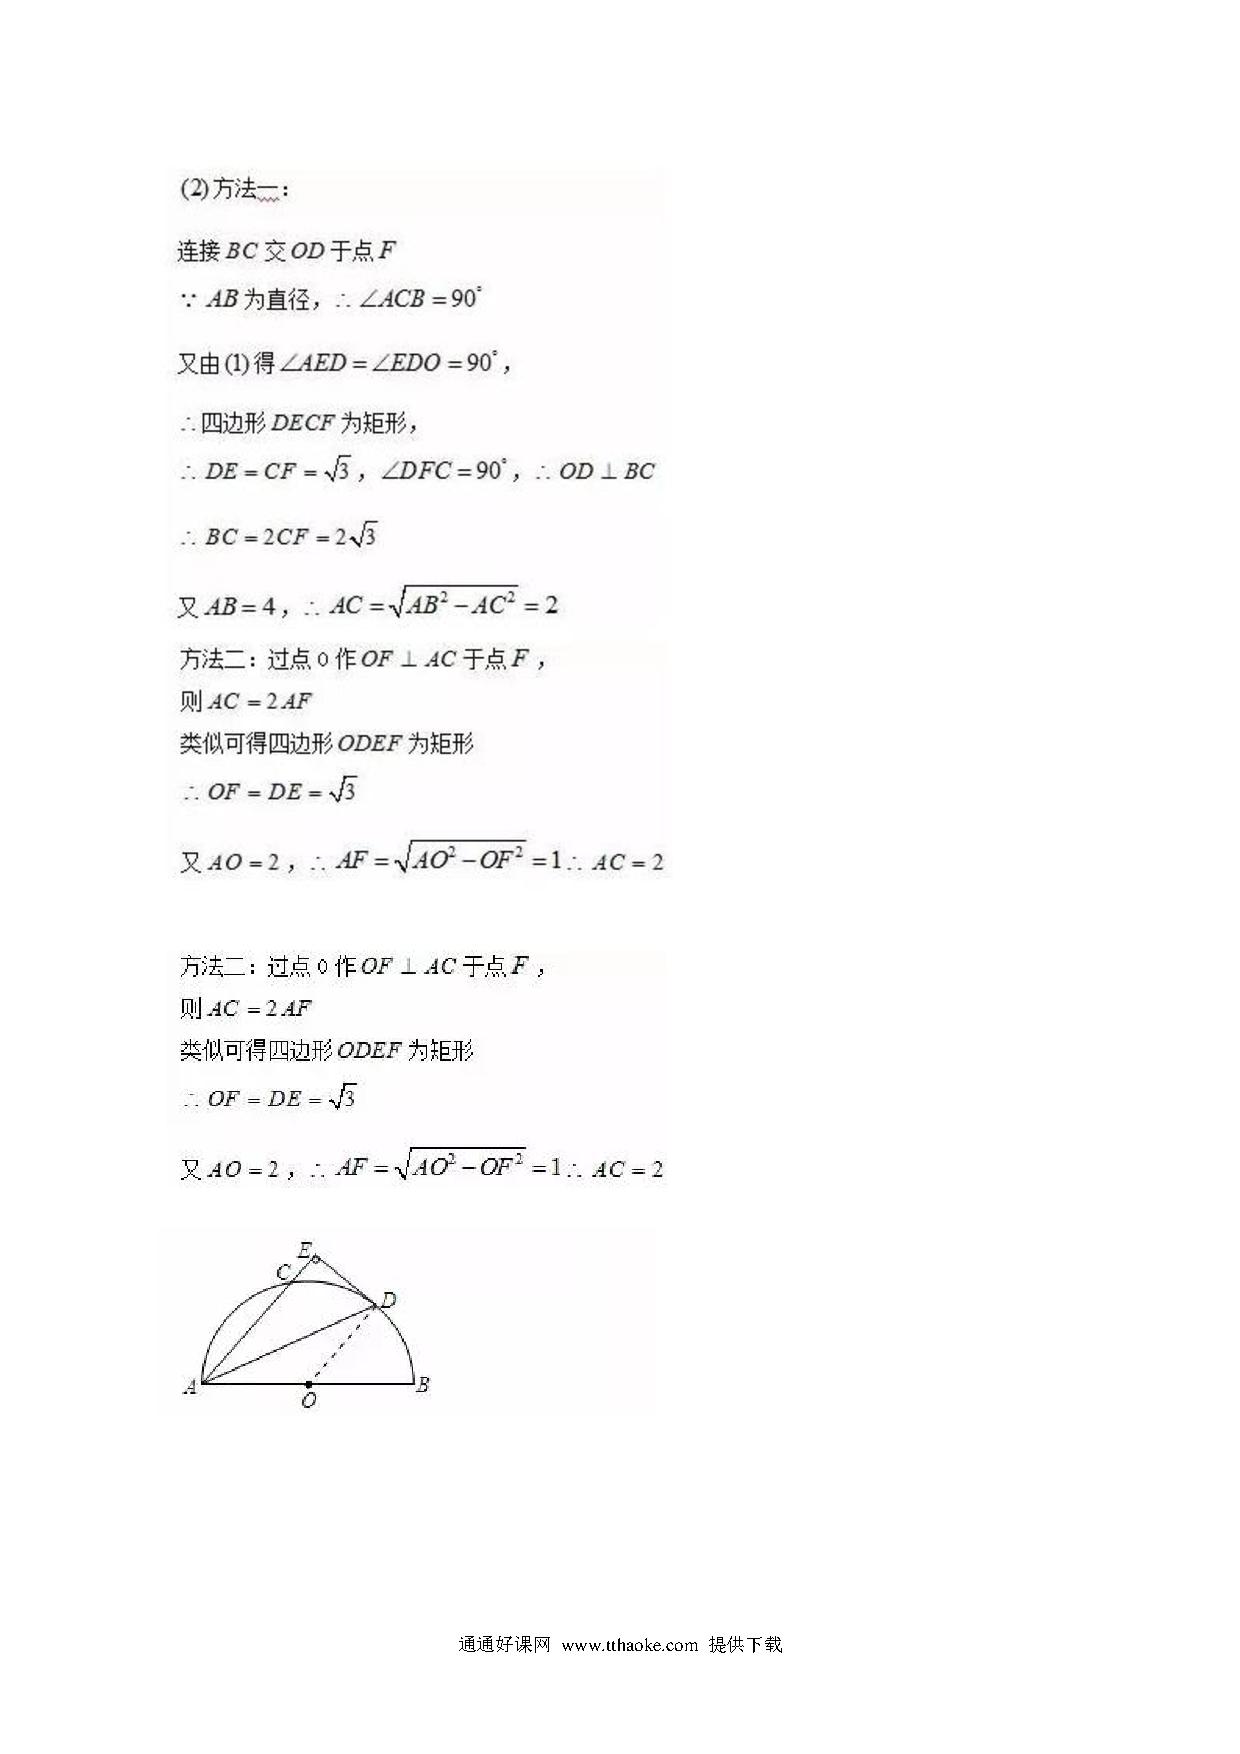 (2)方法一:
连接BC交OD于点F
∵ AB为直径，∴∠ACB=90°
又由(1)得∠AED=∠EDO=90°，
∴四边形DECF为矩形，
∴ DE=CF=√3，∠DFC=90°，∴ OD⊥BC
∴ BC=2CF=2√3
又AB=4，∴ AC=√(AB²-AC²)=2
方法二：过点O作OF⊥AC于点F，
则AC=2AF
类似可得四边形ODEF为矩形
∴ OF=DE=√3
又AO=2，∴ AF=√(AO²-OF²)=1∴ AC=2
方法二：过点O作OF⊥AC于点F，
则AC=2AF
类似可得四边形ODEF为矩形
∴ OF=DE=√3
又AO=2，∴ AF=√(AO²-OF²)=1∴ AC=2
E
C
D
A
B
O
通通好课网 www.tthaoke.com 提供下载